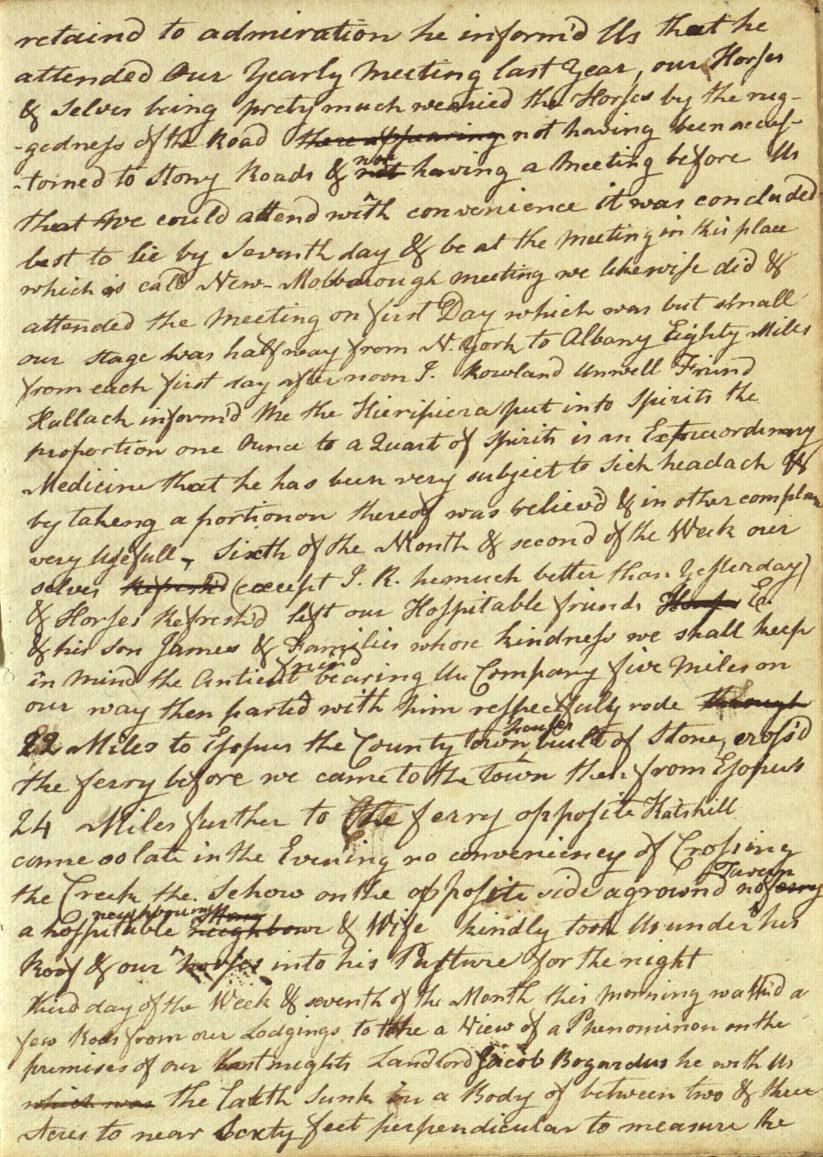 retaind to admiration he inform'd Us that he
attended Our Yearly Meeting last Year, our Horses
& Selves being prety much wearied the Horses by the rug-
-gedness of the Road there appearing not having been accus-
-tomed to Stony Roads & not having a Meeting before Us
that we could attend with convenience it was concluded
best to lie by Seventh day & be at the Meeting in this place
which is calld New-Molborough meeting we likewise did &
attended the Meeting on first Day which was but small
our stage was half way from N. York to Albany Eighty Miles
from each first day afternoon J. Rowland Unwell Friend
Hallack inform'd Me the Hierapicra put into Spirits the
proportion one Ounce to a Quart of Spirits is an Extraordinary
Medicine that he has been very subject to Sick headach &
by takeng a portion on thereof was believd & in other complan
very Usefull, Sixth of the Month & second of the Week our
selves Refresh'd (except J. R. he much better than Yesterday)
& Horses Refresh'd left our Hospitable friends E.
& his son James & Families whose kindness we shall keep
in mind the Antient friend bearing Us Company five Miles on
our way then parted with him respectfully rode through
22 Miles to Esopus the County town, houses built of Stone, cross'd
the ferry before we came to the Town then from Esopus
24 Miles further to the ferry opposite Katskill
came so late in the Evening no conveniency of Crossing
the Creek the Schow on the opposite side aground no Tavern
a hospitable neighbouring neighbour & Wife kindly took Us under his
Roof & our horses into his Pasture for the night
third day of the Week & seventh of the Month this morning walk'd a
few Rods from our Lodgings to take a View of a Phenominon on the
premises of our last nights Landlord Jacob Bogardus he with Us
which was the Earth Sunk in a Body of between two & three
Acres to near Sixty feet perpendicular to measure the